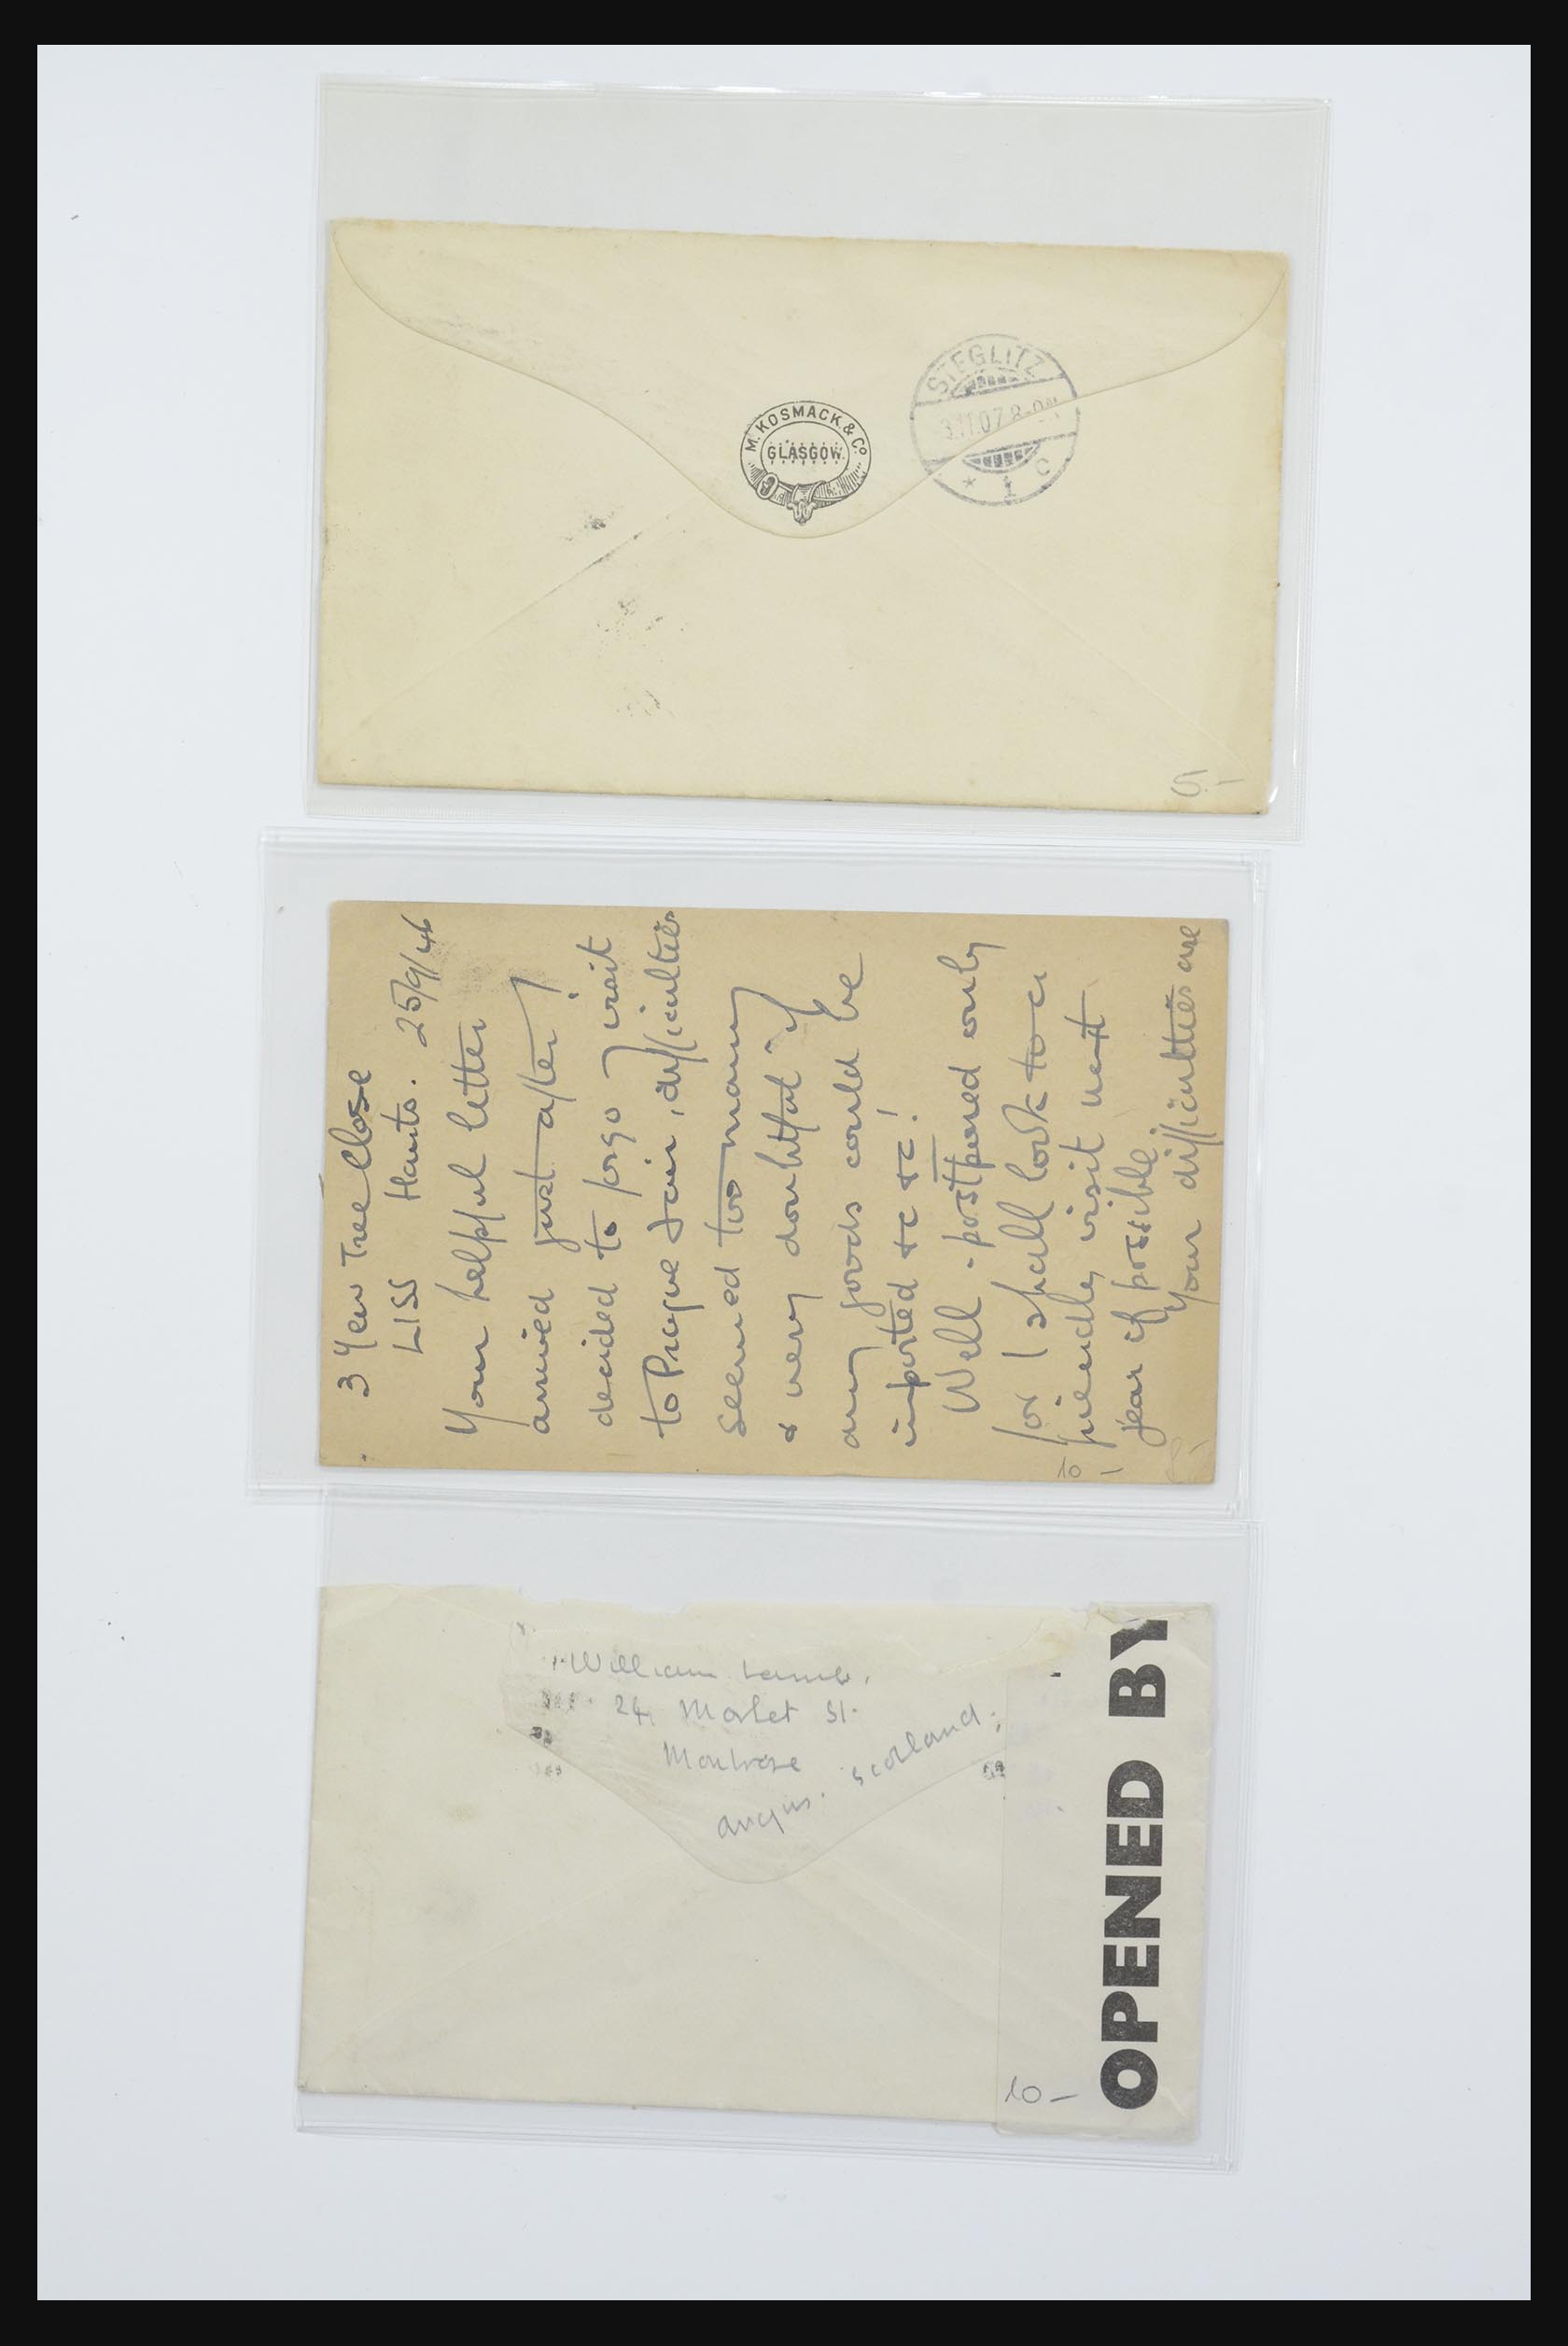 M. KOSMACK & Co.
GLASGOW.
STEGLITZ
3.11.07.8-9
* 1 C
5.-
3 Yew Tree Close
LISS Hants. 25/9/46
Your helpful letter
arrived just after I
decided to forgo visit
to Prague Fair, difficulties
seemed too many
& very doubtful if
any goods could be
imported &c &c!
Well - postponed only
for I shall look to a
friendly visit next
year if possible
Your difficulties are
10
-
William Lamb.
24, Market St.
Montrose
Angus. Scotland.
OPENED BY
10-